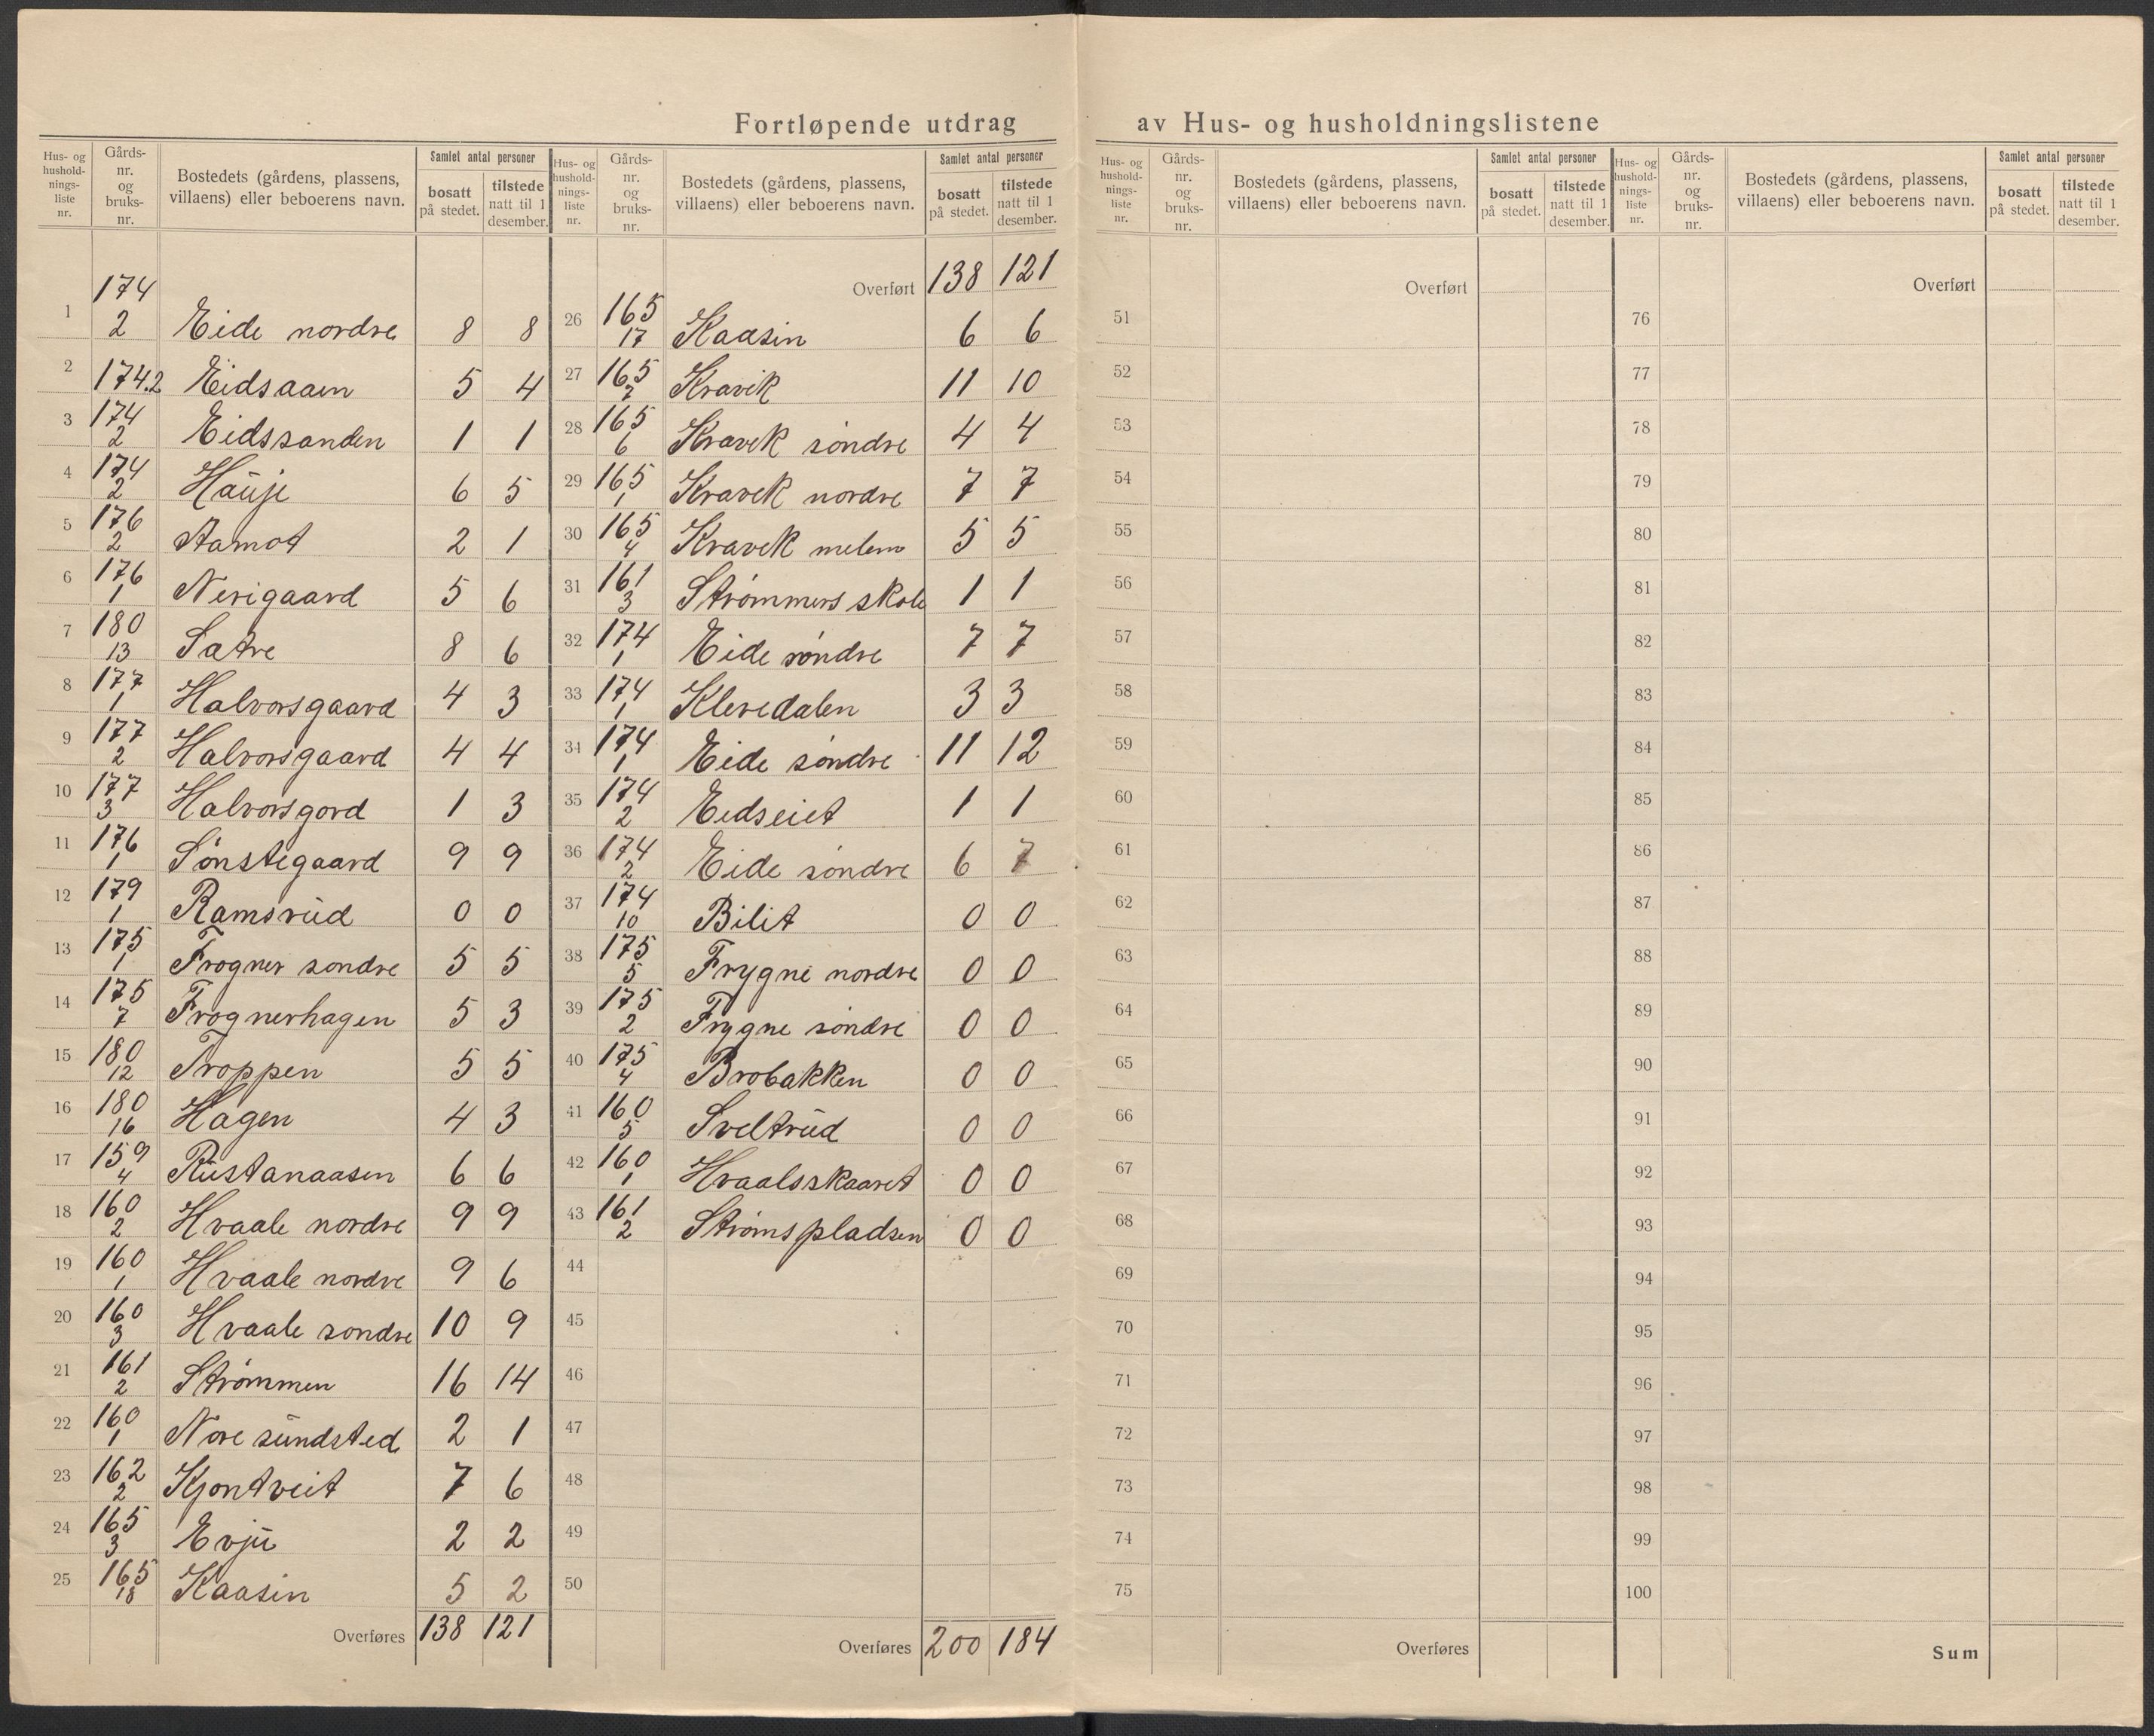 Fortløpende utdrag av Hus- og husholdningslistene
Hus- og husholdningsliste nr. Gårds- nr. og bruks- nr. Bostedets (gårdens, plassens, villaens) eller beboerens navn. Samlet antal personer bosatt på stedet. tilstede natt til 1 desember.
1 174 2 Eide nordre 8 8
2 174.2 Eidsaaen 5 4
3 174 2 Eidssanden 1 1
4 174 2 Hauje 6 5
5 176 2 Aamot 2 1
6 176 1 Nerigaard 5 6
7 180 13 Satre 8 6
8 177 1 Halvorsgaard 4 3
9 177 2 Halvorsgaard 4 4
10 177 3 Halvorsgord 1 3
11 176 1 Sønstegaard 9 9
12 179 1 Ramsrud 0 0
13 175 1 Frogner sondre 5 5
14 175 7 Frognerhagen 5 3
15 180 12 Troppen 5 5
16 180 16 Hagen 4 3
17 159 4 Rustanaasen 6 6
18 160 2 Hvaale nordre 9 9
19 160 1 Hvaale nordre 9 6
20 160 3 Hvaale sondre 10 9
21 161 2 Strømmen 16 14
22 160 1 Nore sundsted 2 1
23 162 2 Kjontveit 7 6
24 165 3 Evju 2 2
25 165 18 Kaasin 5 2
Overføres 138 121
Hus- og husholdningsliste nr. Gårds- nr. og bruks- nr. Bostedets (gårdens, plassens, villaens) eller beboerens navn. Samlet antal personer bosatt på stedet. tilstede natt til 1 desember.
Overført 138 121
26 165 17 Kaasin 6 6
27 165 2 Kravik 11 10
28 165 6 Kravek søndre 4 4
29 165 1 Kravek nordre 7 7
30 165 4 Kravek melem 5 5
31 161 3 Strømmers skole 1 1
32 174 1 Eide søndre 7 7
33 174 1 Klevedalen 3 3
34 174 1 Eide søndre 11 12
35 174 2 Eidseiet 1 1
36 174 2 Eide søndre 6 7
37 174 10 Bilit 0 0
38 175 5 Frygne nordre 0 0
39 175 2 Frygne søndre 0 0
40 175 4 Brobakken 0 0
41 160 5 Sveltrud 0 0
42 160 1 Hvaalsskaaret 0 0
43 161 2 Strømspladsen 0 0
44
45
46
47
48
49
50
Overføres 200 184
Hus- og husholdningsliste nr. Gårds- nr. og bruks- nr. Bostedets (gårdens, plassens, villaens) eller beboerens navn. Samlet antal personer bosatt på stedet. tilstede natt til 1 desember.
Overført
51
52
53
54
55
56
57
58
59
60
61
62
63
64
65
66
67
68
69
70
71
72
73
74
75
Overføres
Hus- og husholdningsliste nr. Gårds- nr. og bruks- nr. Bostedets (gårdens, plassens, villaens) eller beboerens navn. Samlet antal personer bosatt på stedet. tilstede natt til 1 desember.
Overført
76
77
78
79
80
81
82
83
84
85
86
87
88
89
90
91
92
93
94
95
96
97
98
99
100
Sum